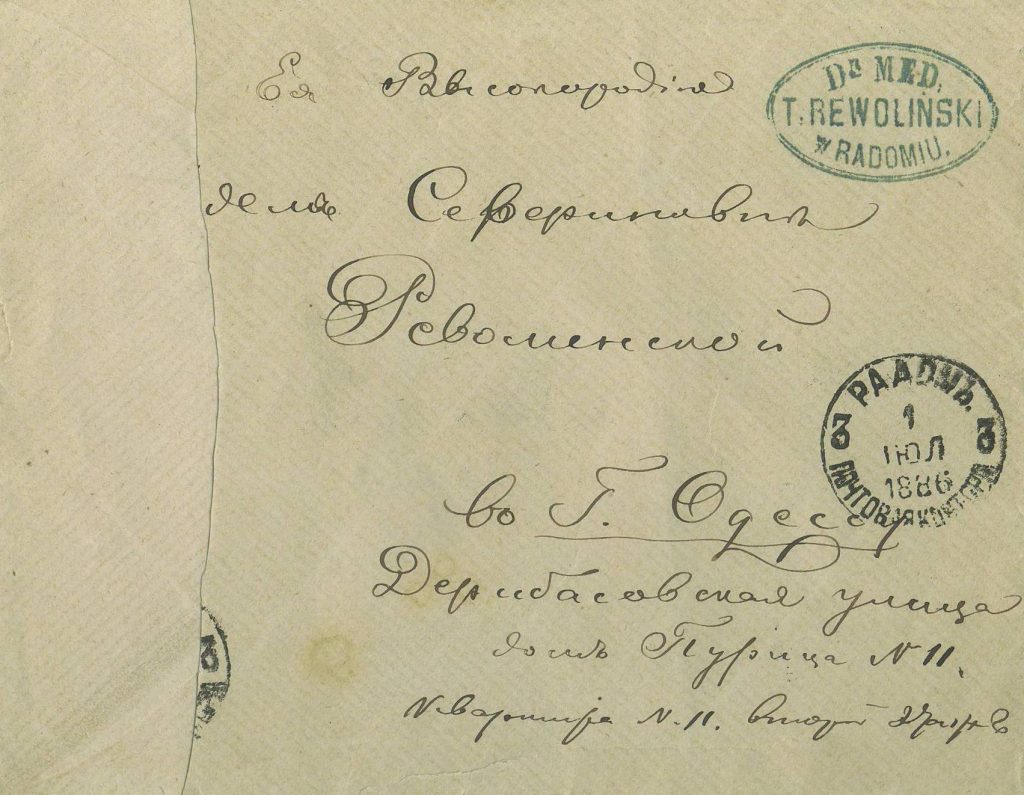 Ея Высокородія
DR MED.
T. REWOLIŃSKI
w RADOMIU.
Севериновнѣ
Револинской
РАДОМЪ.
3 1 3
ІЮЛ
1886
ПОЧТОВАЯ КОНТОРА
во Г. Одессу
Дерибасовская улица
домъ Пурица N 11.
Квартира N. 11. второй этажъ
3